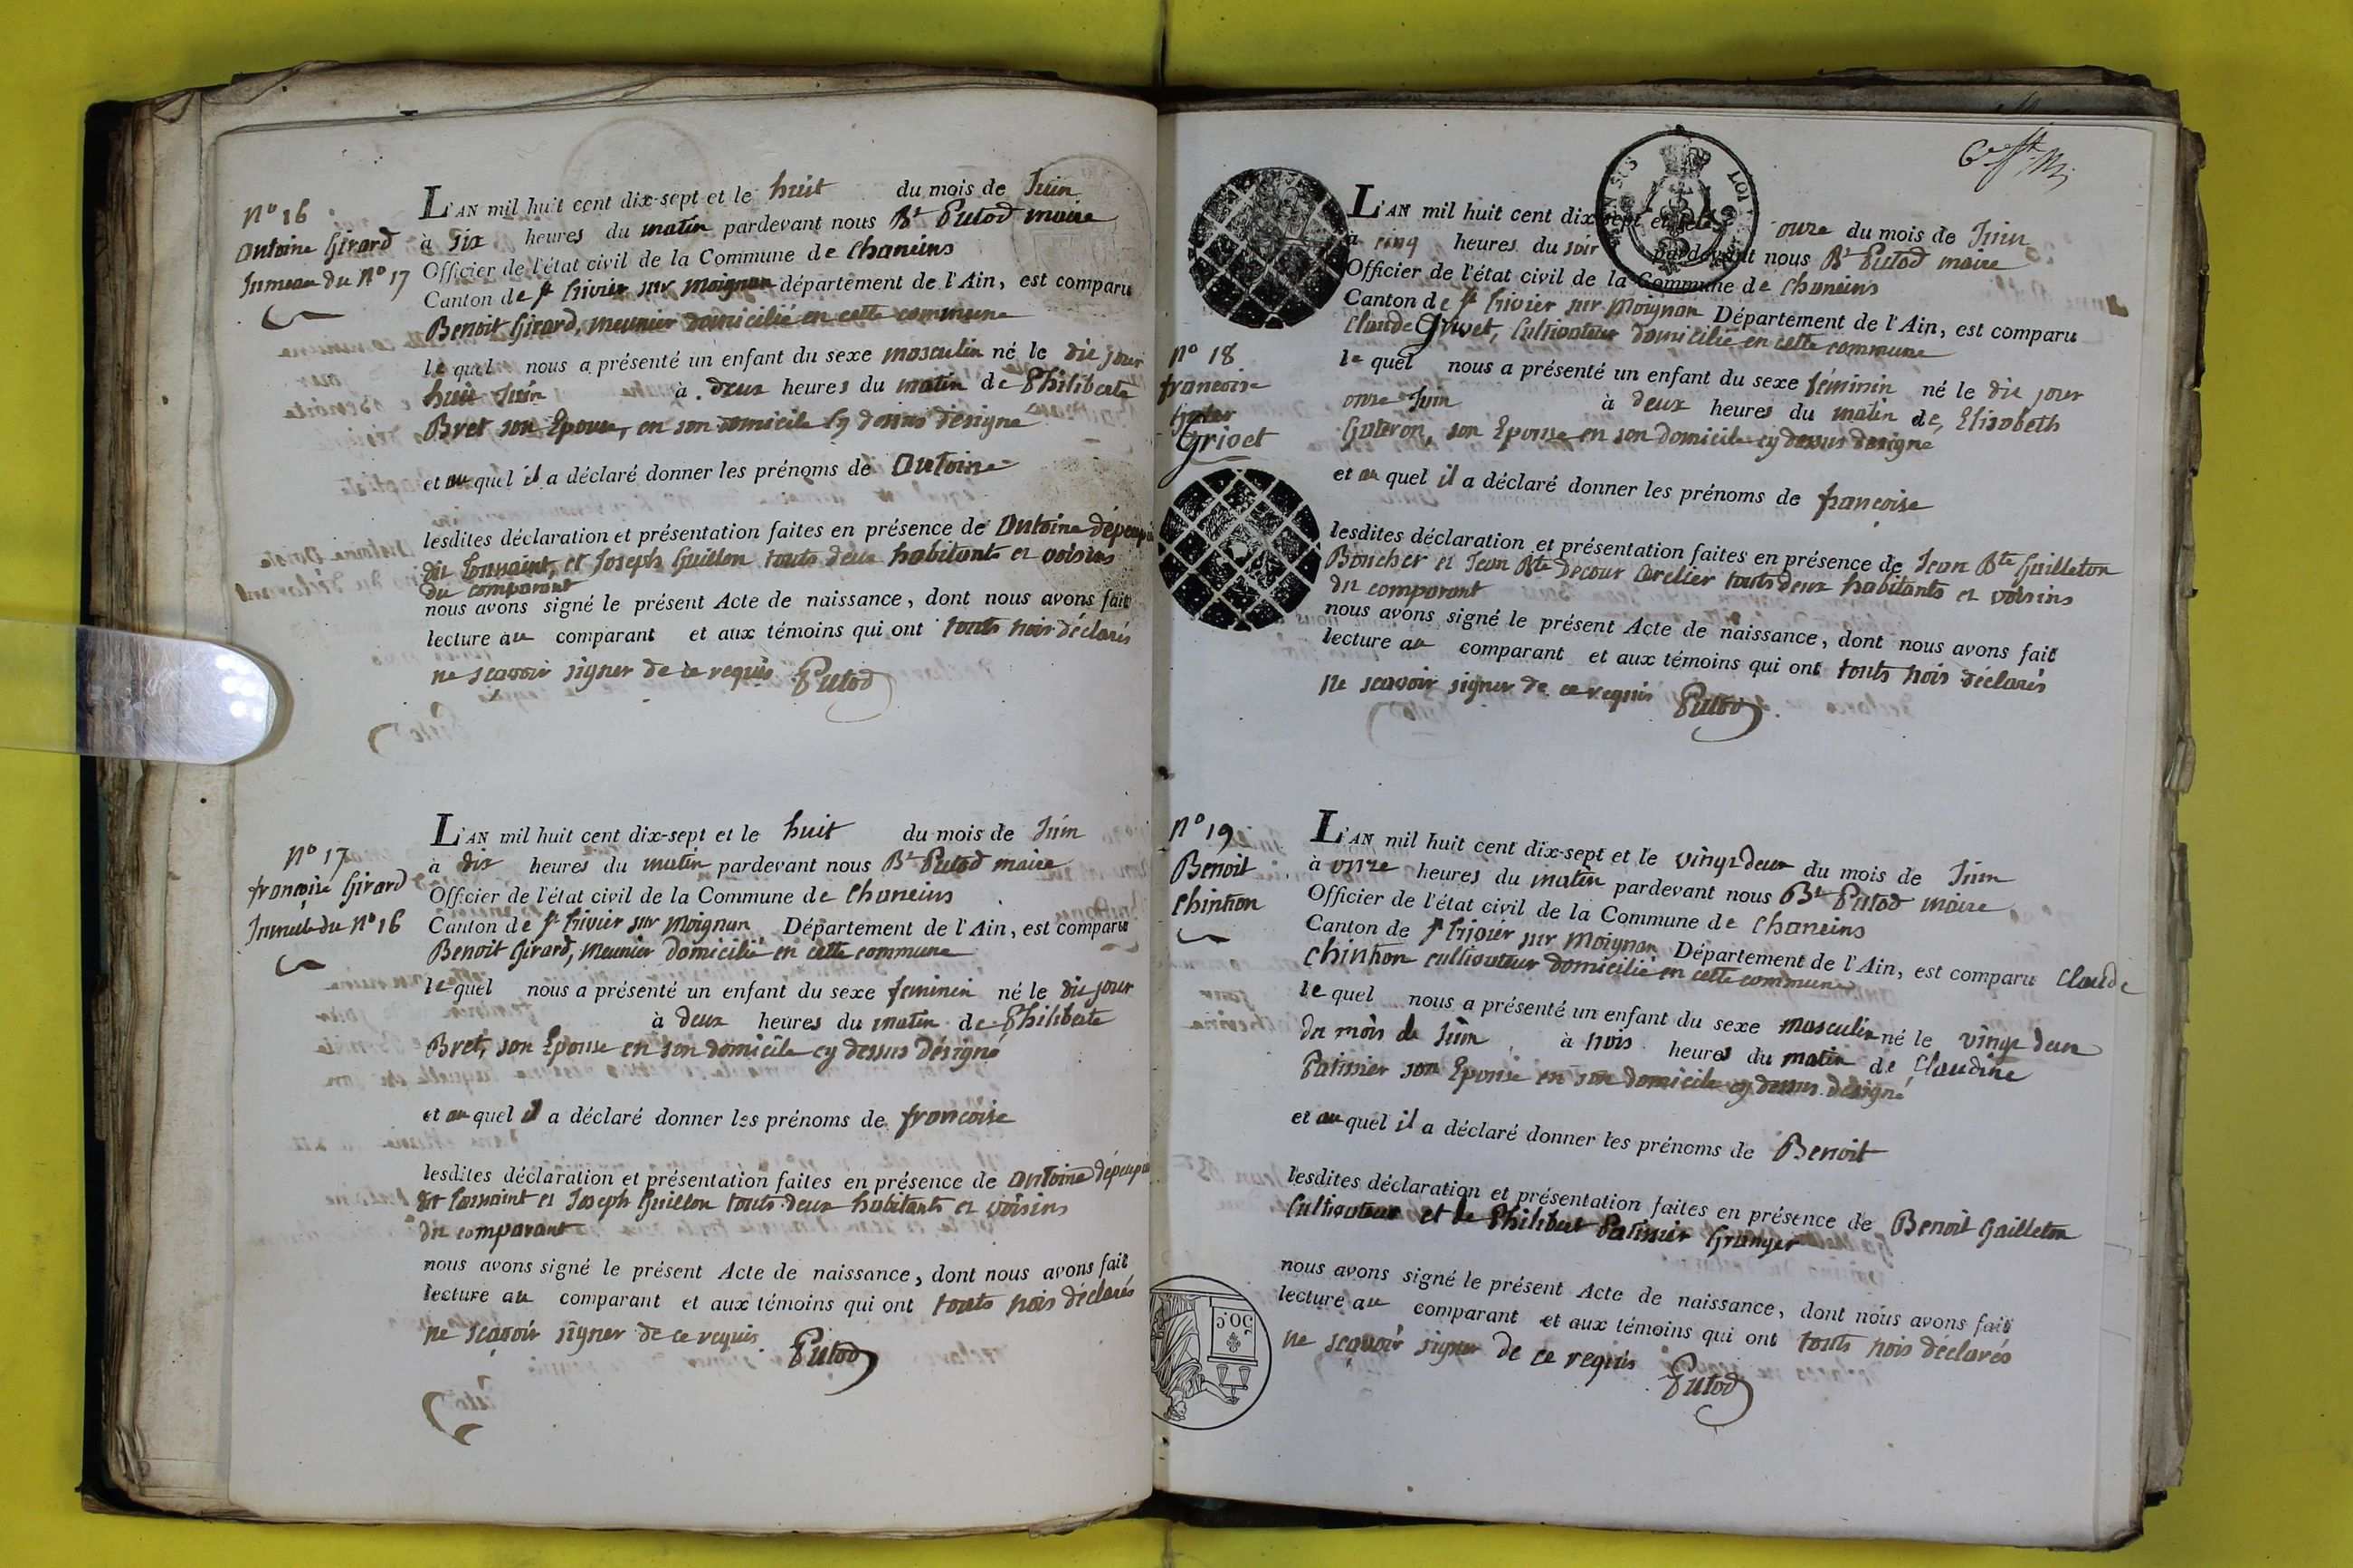 N° 16
Antoine Girard
Jumeau du N° 17
L'AN mil huit cent dix-sept et le huit du mois de Juin
à dix heures du matin pardevant nous Bt Putod maire
Officier de l'état civil de la Commune de Chaneins
Canton de St Trivier sur Moignan département de l'Ain, est comparu
Benoit Girard, meunier domicilié en cette commune
lequel nous a présenté un enfant du sexe masculin né le dit jour
huit Juin à deux heures du matin de Philiberte
Bret son Epouse, en son domicile cy dessus désigné
et auquel il a déclaré donner les prénoms de Antoine
lesdites déclaration et présentation faites en présence de Antoine
dit Toussaint, et Joseph Guillon touts deux habitants et voisins
du comparant
nous avons signé le présent Acte de naissance, dont nous avons fait
lecture au comparant et aux témoins qui ont touts trois déclarés
ne sçavoir signer de ce requis Putod
N° 17
françoise Girard
Jumele du N° 16
L'AN mil huit cent dix-sept et le huit du mois de Juin
à dix heures du matin pardevant nous Bt Putod maire
Officier de l'état civil de la Commune de Chaneins
Canton de St Trivier sur Moignan Département de l'Ain, est comparu
Benoit Girard, Meunier Domicilié en cette commune
lequel nous a présenté un enfant du sexe feminin né le dit jour
à deux heures du matin de Philiberte
Bret, son Epouse en son domicile cy dessus désigné
et auquel il a déclaré donner les prénoms de françoise
lesdites déclaration et présentation faites en présence de Antoine
dit Toussaint et Joseph Guillon touts deux habitants et voisins
du comparant
nous avons signé le présent Acte de naissance, dont nous avons fait
lecture au comparant et aux témoins qui ont touts trois déclarés
ne sçavoir signer de ce requis Putod
N° 18
francoise
Grivet
L'AN mil huit cent dix-sept et le onze du mois de Juin
à cinq heures du soir pardevant nous Bt Putod maire
Officier de l'état civil de la Commune de Chaneins
Canton de St Trivier sur Moignan Département de l'Ain, est comparu
Claude Grivet, Cultivateur domicilié en cette commune
lequel nous a présenté un enfant du sexe féminin né le dit jour
onze Juin à deux heures du matin de Elisabeth
son Epouse en son domicile cy dessus designé
et auquel il a déclaré donner les prénoms de françoise
lesdites déclaration et présentation faites en présence de Jean Bte Gailleton
Boucher et Jean Bte Decour touts deux habitants et voisins
du comparant
nous avons signé le présent Acte de naissance, dont nous avons fait
lecture au comparant et aux témoins qui ont touts trois déclarés
ne scavoir signer de ce requis Putod
N° 19
Benoit
Chintron
L'AN mil huit cent dix-sept et le vingt deux du mois de Juin
à onze heures du matin pardevant nous Bt Putod maire
Officier de l'état civil de la Commune de Chaneins
Canton de St Trivier sur Moignan Département de l'Ain, est comparu Claude
Chintron cultivateur domicilié en cette commune
lequel nous a présenté un enfant du sexe masculin né le vingt deux
du mois de Juin à trois heures du matin de Claudine
Patissier son Epouse en son domicile cy dessus désigné
et auquel il a déclaré donner les prénoms de Benoit
lesdites déclaration et présentation faites en présence de Benoit Gailleton
Cultivateur et de Philibert Patissier Granger
nous avons signé le présent Acte de naissance, dont nous avons fait
lecture au comparant et aux témoins qui ont touts trois déclarés
ne sçavoir signer de ce requis Putod